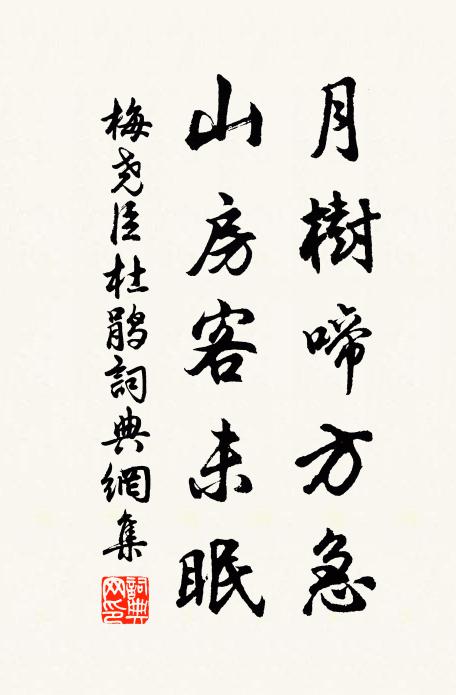 月樹啼方急
山房客未眠
梅尧臣杜鹃詞典網集
詞典网印